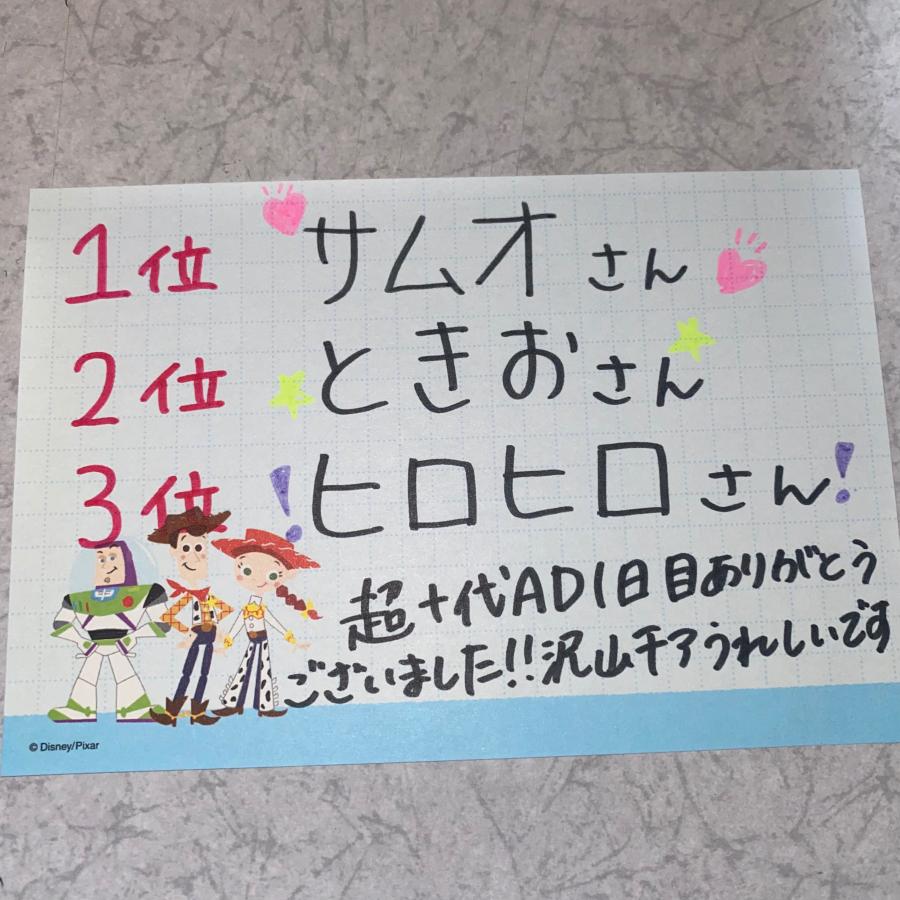 1位 サムオさん
2位 ときおさん
3位 !ヒロヒロさん!
超十代AD1日目ありがとう
ございました!!沢山千アうれしいです
© Disney/Pixar